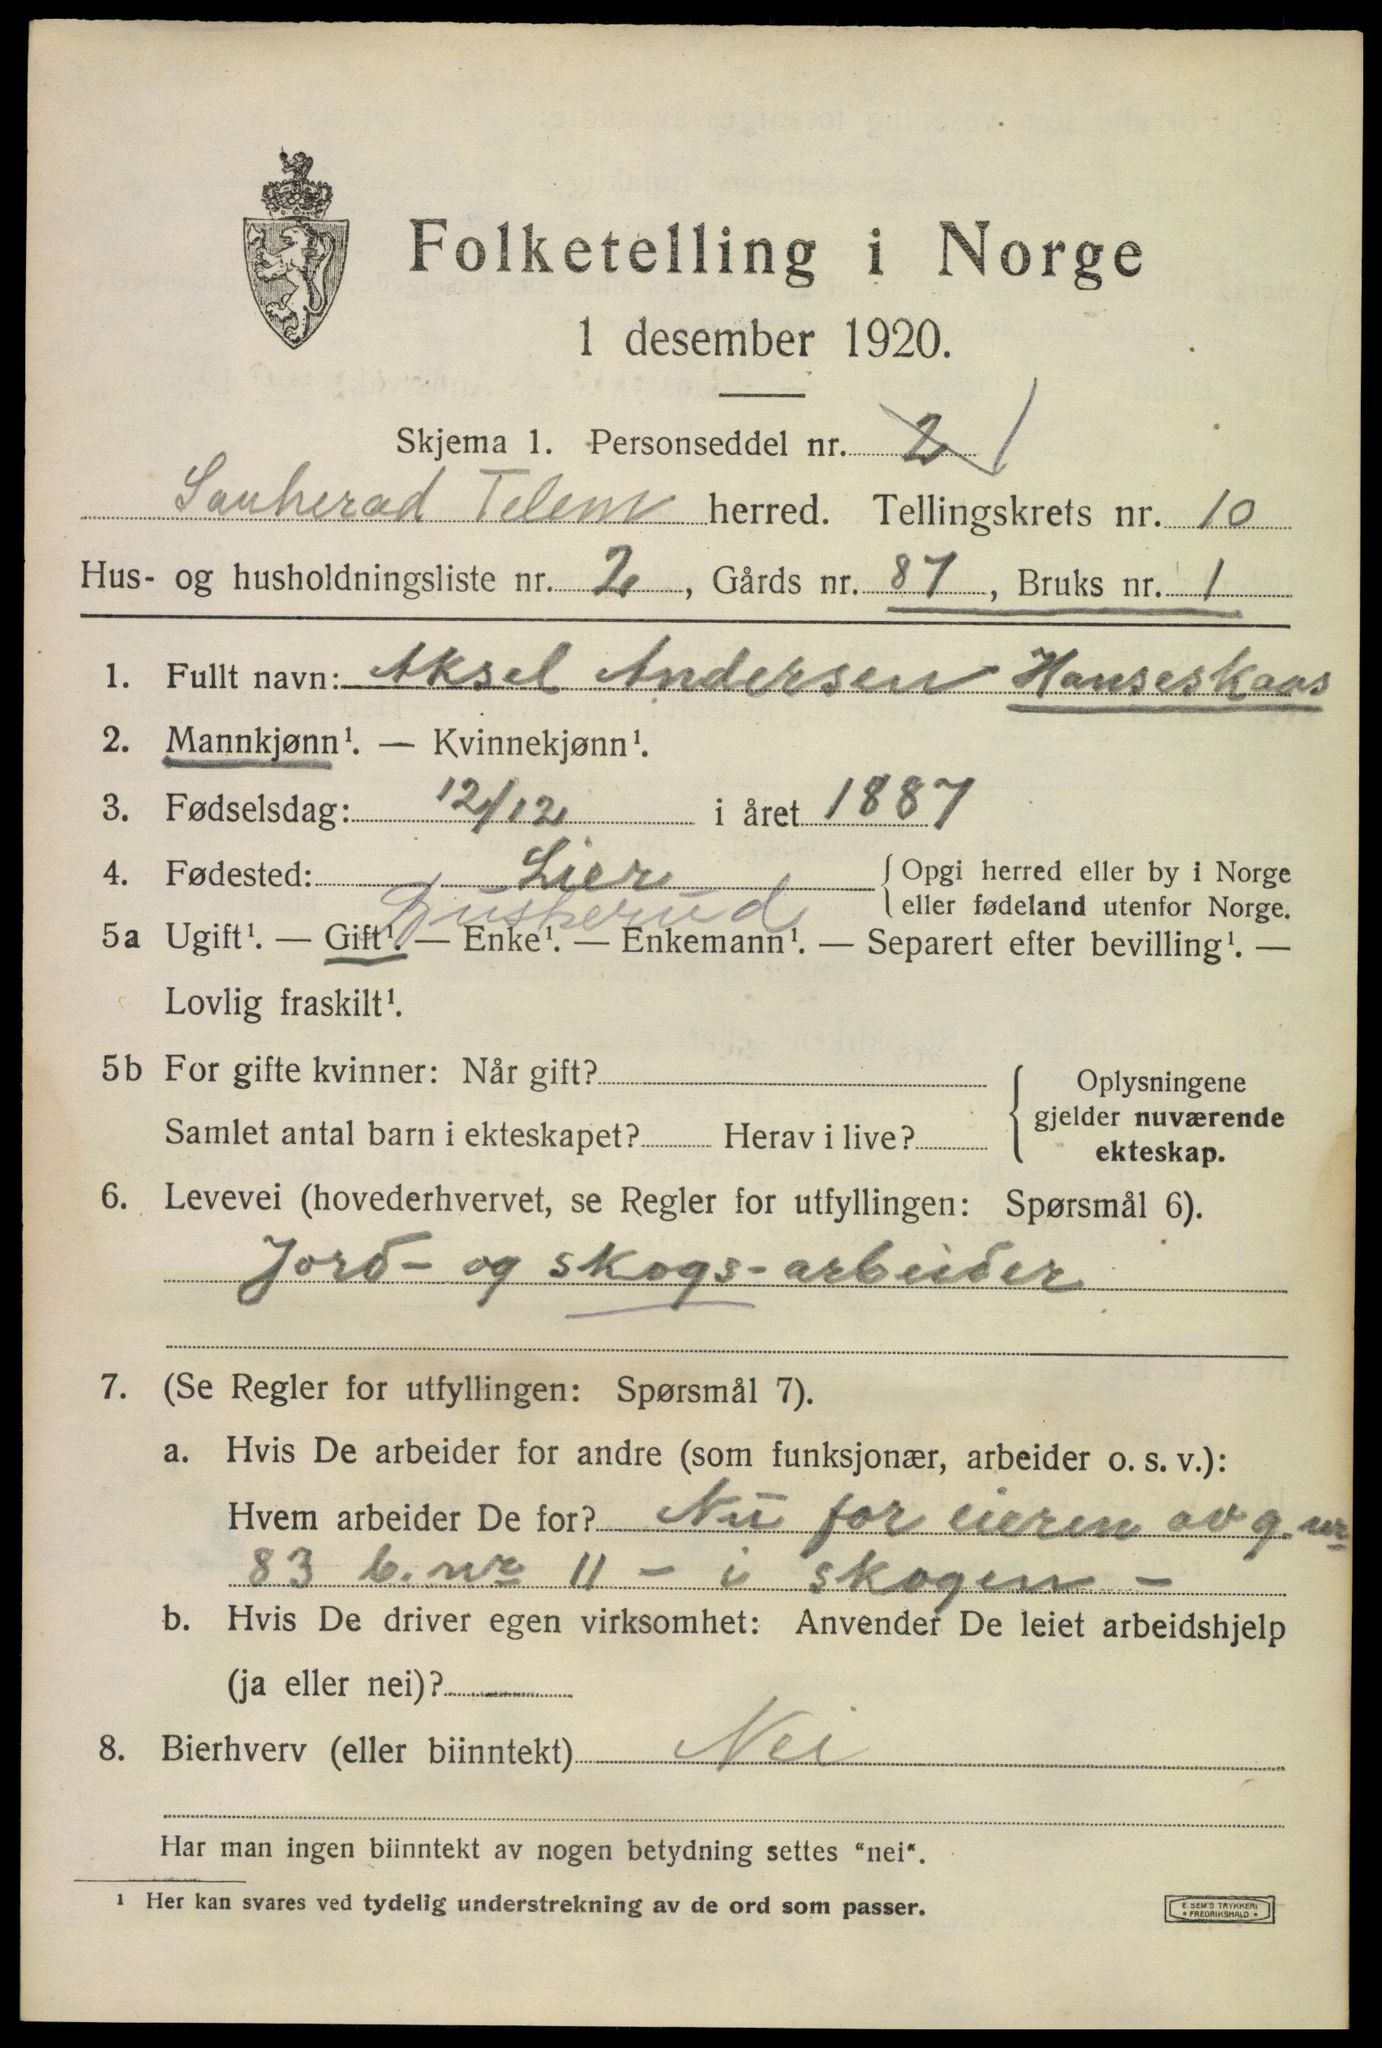 Folketelling i Norge
1 desember 1920.
Skjema 1. Personseddel nr. 2 1
Sauherad Telem herred. Tellingskrets nr. 10
Hus- og husholdningsliste nr. 2, Gårds nr. 87, Bruks nr. 1
1. Fullt navn: Aksel Andersen Hanseskaas
2. Mannkjønn¹. — Kvinnekjønn¹.
3. Fødselsdag: 12/12 i året 1887
4. Fødested: Lier { Opgi herred eller by i Norge
eller fødeland utenfor Norge.
Buskerud
5a Ugift¹. — Gift¹. — Enke¹. — Enkemann¹. — Separert efter bevilling¹. —
Lovlig fraskilt¹.
5b For gifte kvinner: Når gift? { Oplysningene
gjelder nuværende
Samlet antal barn i ekteskapet? Herav i live?
ekteskap.
6. Levevei (hovederhvervet, se Regler for utfyllingen: Spørsmål 6).
Jord- og skogs-arbeider
7. (Se Regler for utfyllingen: Spørsmål 7).
a. Hvis De arbeider for andre (som funksjonær, arbeider o. s. v.):
Hvem arbeider De for? Nu for eieren av g. nr
83 b. nr 11 - i skogen -
b. Hvis De driver egen virksomhet: Anvender De leiet arbeidshjelp
(ja eller nei)?
8. Bierhverv (eller biinntekt) Nei
Har man ingen biinntekt av nogen betydning settes "nei".
¹ Her kan svares ved tydelig understrekning av de ord som passer.
E. SEM'S TRYKKERI
* FREDRIKSHALD *